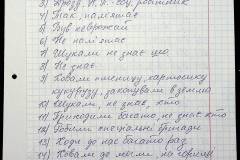 3) Дрозд. И. Я. був робітник
4) Так. пам'ятає
5) Був неврожай
6) Не пам'ятає
7) Шукали не знає що
8) Не знає
9) Ховали пшеницу, картошку
кукурузу, закопували в землю
10) Шукали, не знає, хто
11) Приходили багато, не знає хто
12) Робили спеціальні бригади
13) Ходи до нас багато раз
14) Ховали до мегли, на горищі